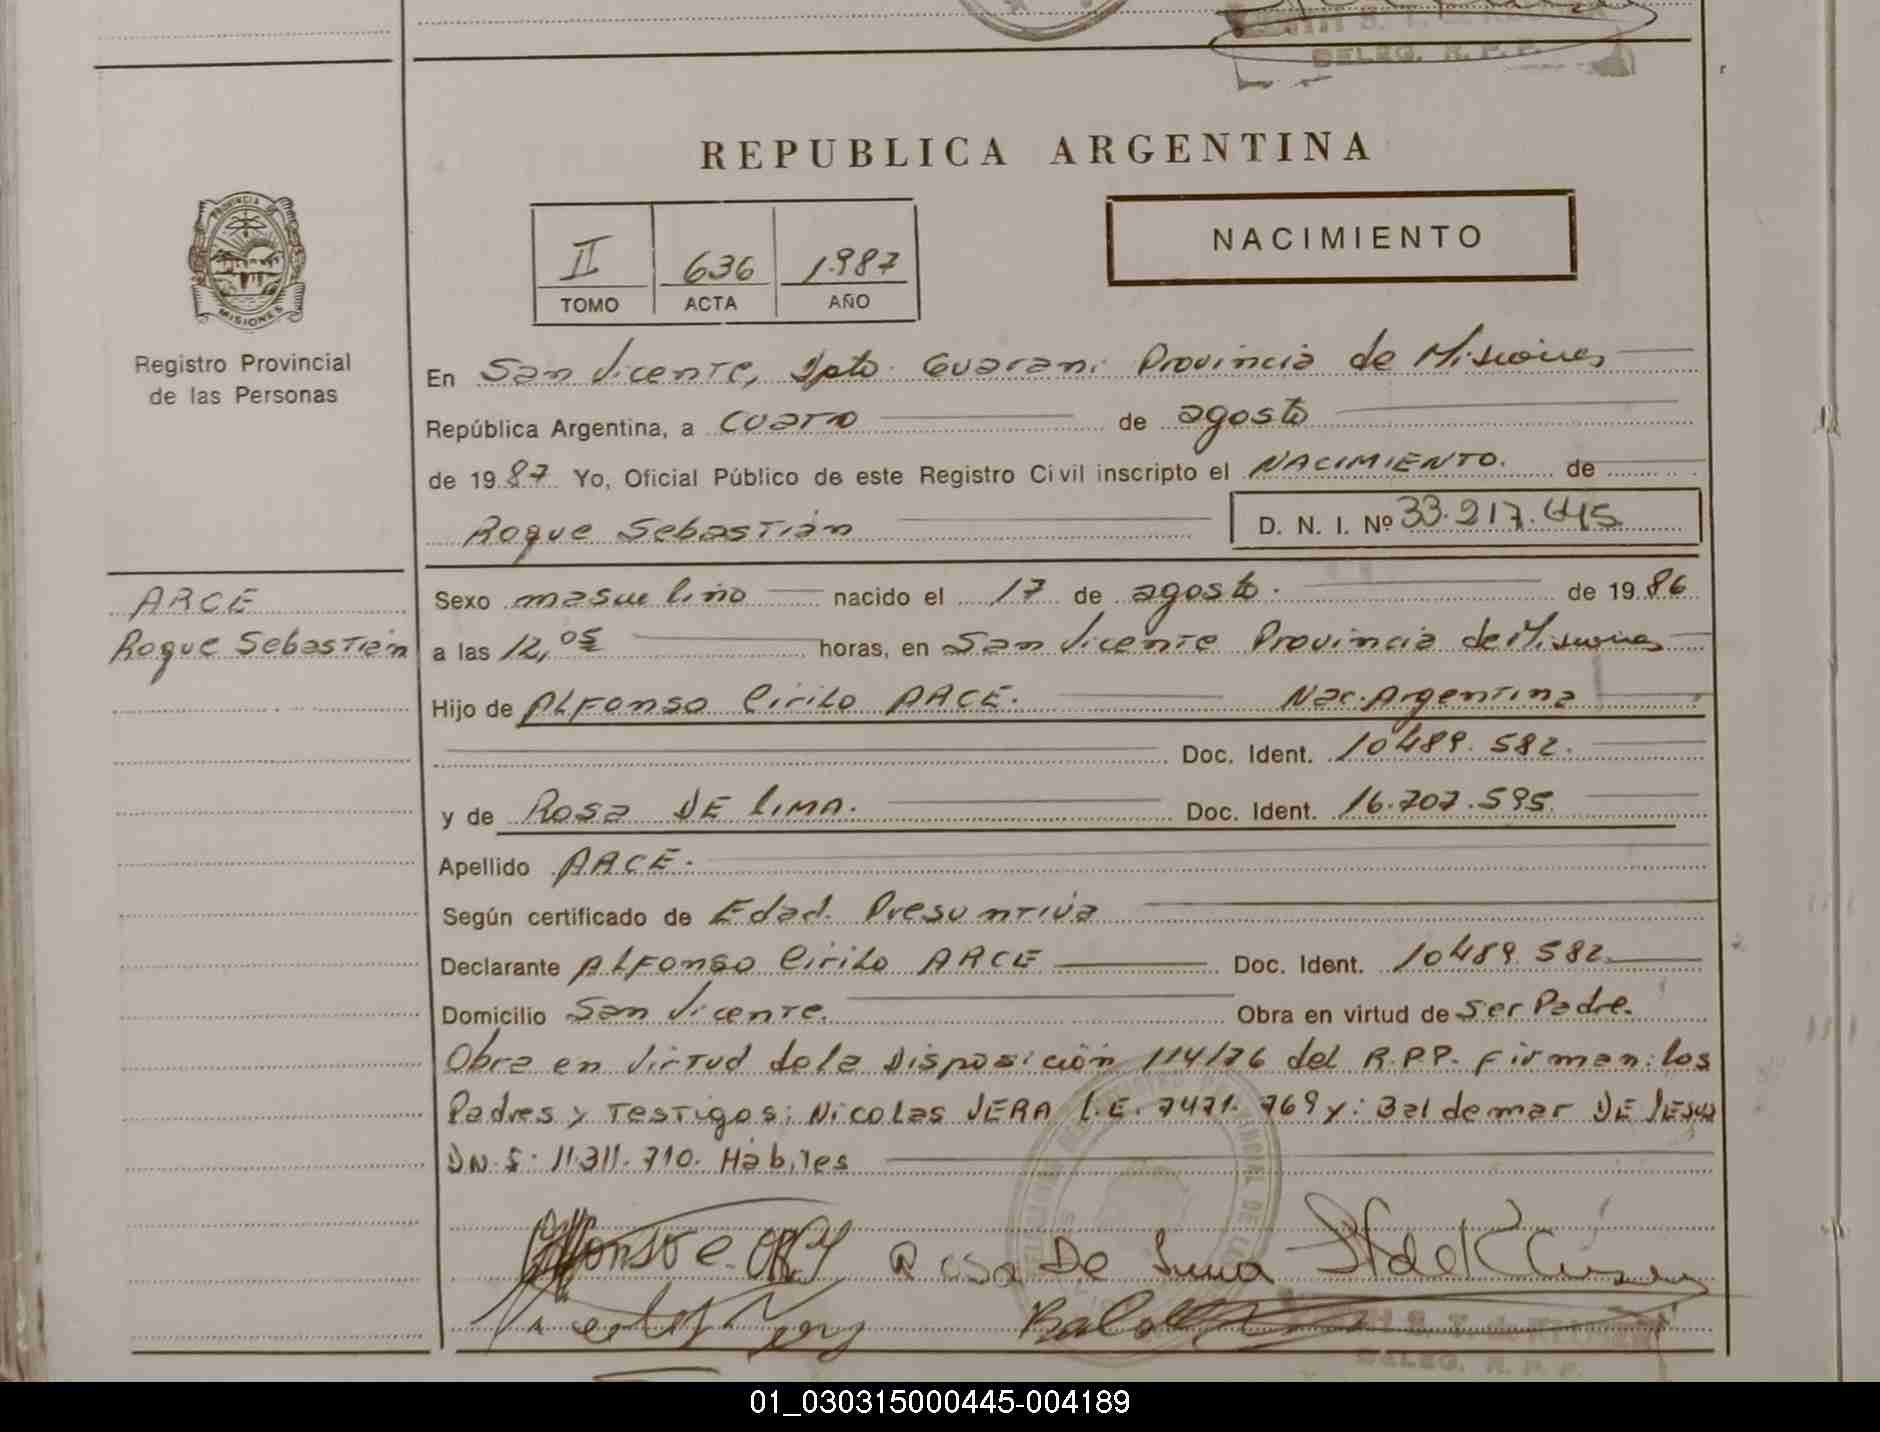 DELEG. R. P. P.
REPUBLICA ARGENTINA
II 636 1987
TOMO ACTA AÑO
NACIMIENTO
PROVINCIA DE
MISIONES
Registro Provincial
de las Personas
En San Vicente, Dpto. Guarani Provincia de Misiones
República Argentina, a Cuatro de agosto
de 1987 Yo, Oficial Público de este Registro Civil inscripto el NACIMIENTO. de
Roque Sebastián D. N. I. Nº 33.217.445
ARCE
Roque Sebastián
Sexo masculino nacido el 17 de agosto. de 1986
a las 12,05 horas, en San Vicente Provincia de Misiones
Hijo de ALFonso CiriLo ARCE. Nac. Argentina
Doc. Ident. 10489.582.
y de Rosa DE LIMA. Doc. Ident. 16.707.595.
Apellido ARCE.
Según certificado de Edad. Presuntiva
Declarante ALFonso CiriLo ARCE Doc. Ident. 10489.582.
Domicilio San Vicente. Obra en virtud de Ser Padre.
Obra en Virtud de la Disposición 114/76 del R.P.P. Firman: los
Padres y Testigos: Nicolas VERA L.E. 7471.769 y: Baldemar DE JESUS
11.311.710. Hábiles
Rosa De Lima
DELEG. R. P. P.
01_030315000445-004189